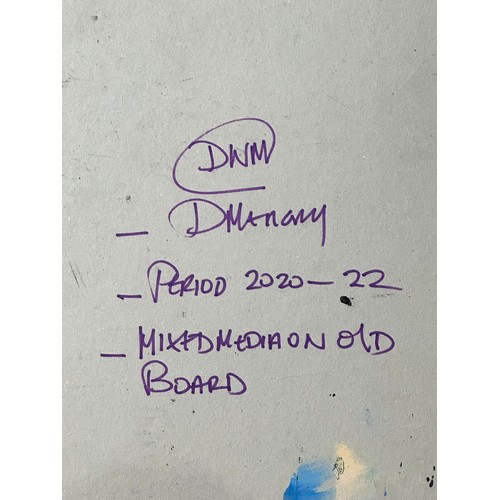 DWM
- DMALONY
- PERIOD 2020-22
- MIXED MEDIA ON OLD
BOARD